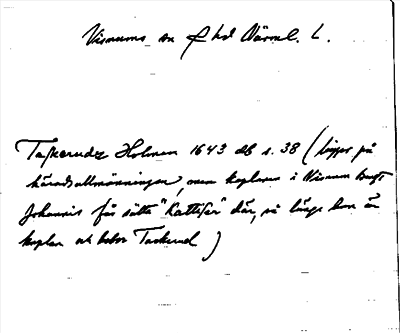 Visnums sn f hd Värml. L.
Taskerudz Holmen 1643 db s. 38 (ligger på
häradsallmänningen, men kaplanen i Visnum Bengt
Johannis får sätta "Kattisor" där, så länge han är
kaplan och bebor Taskerud)